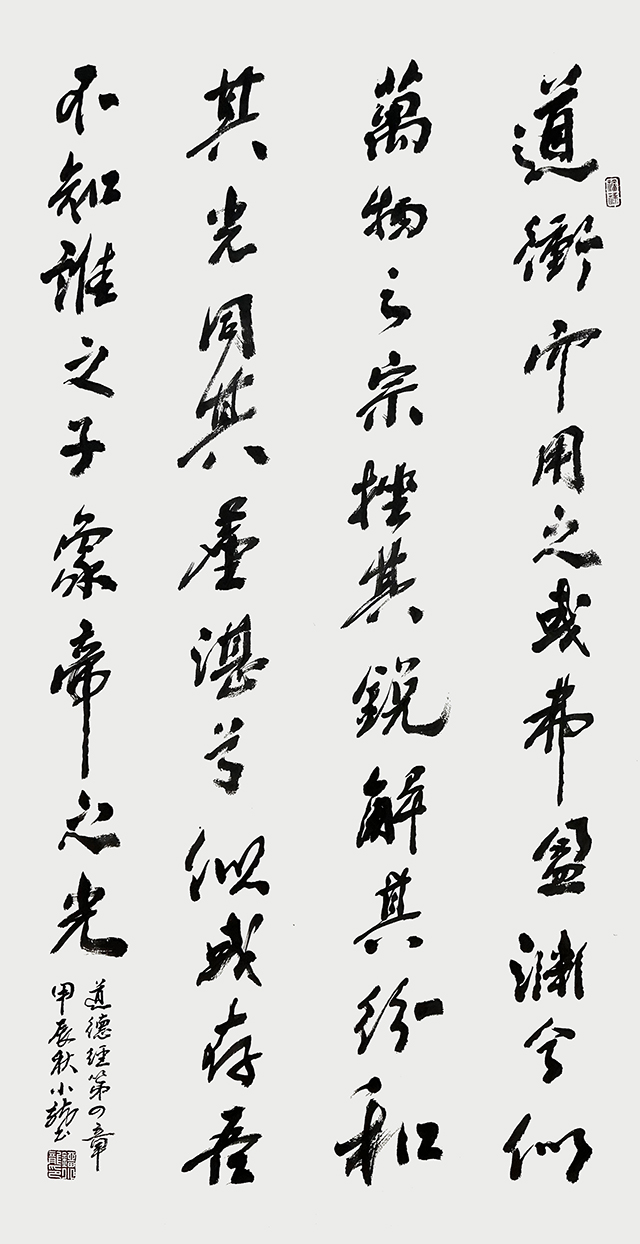 道衝而用之或弗盈淵兮似
萬物之宗挫其銳解其紛和
其光同其塵湛兮似或存吾
不知誰之子象帝之先
道德經第四章
甲辰秋小書